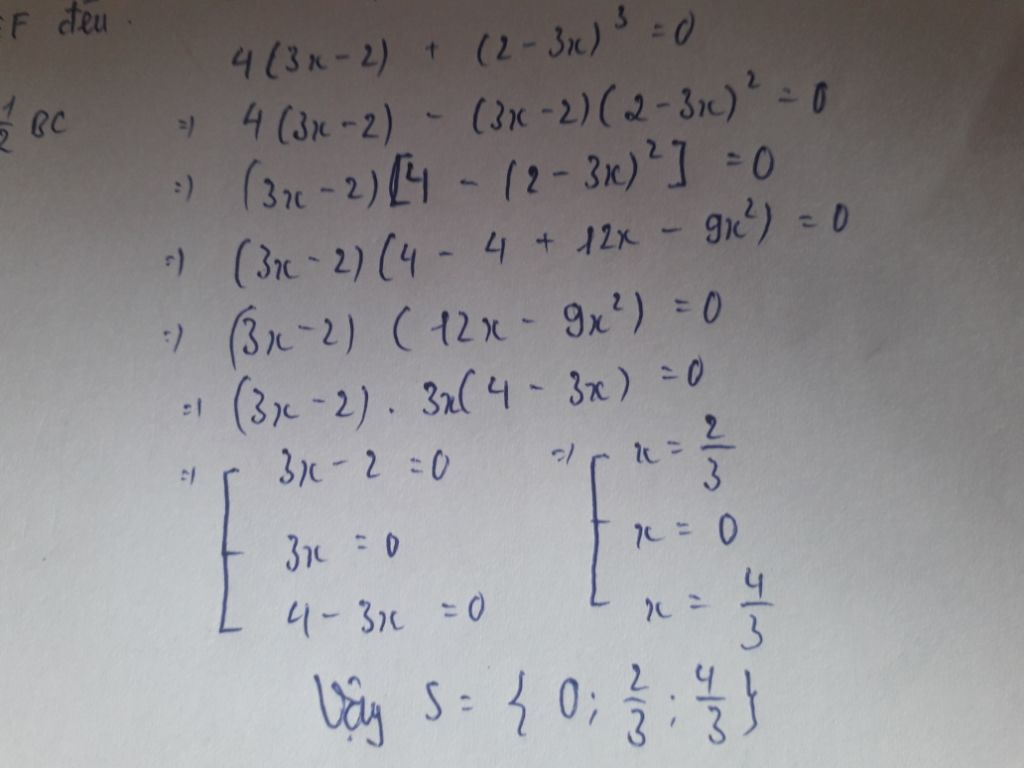 EF đều.
4(3x-2) + (2-3x)³ = 0
½ BC
=> 4(3x-2) - (3x-2)(2-3x)² = 0
=> (3x-2)[4 - (2-3x)²] = 0
=> (3x-2)(4 - 4 + 12x - 9x²) = 0
=> (3x-2) (12x - 9x²) = 0
=> (3x-2) . 3x(4 - 3x) = 0
=> [ 3x-2 = 0 => [ x = 2/3
3x = 0 x = 0
4 - 3x = 0 x = 4/3
Vậy S = { 0; 2/3; 4/3 }